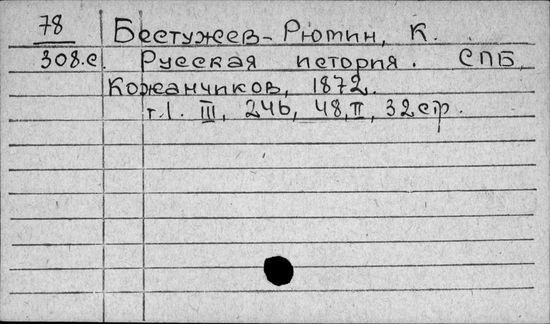 78 Бестужев-Рюмин, К.
308.с. Русская история. СПБ,
Кожанчиков, 1872.
т.1. III, 246, 48, II, 32 стр.